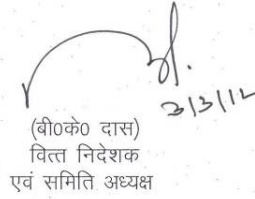 3/3/12
(बी0के0 दास)
वित्त निदेशक
एवं समिति अध्यक्ष